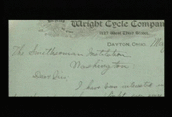 Wright Cycle Company
1127 West Third Street
DAYTON, OHIO,
The Smithsonian Institution
Washington
Dear Sirs:
I have been interested